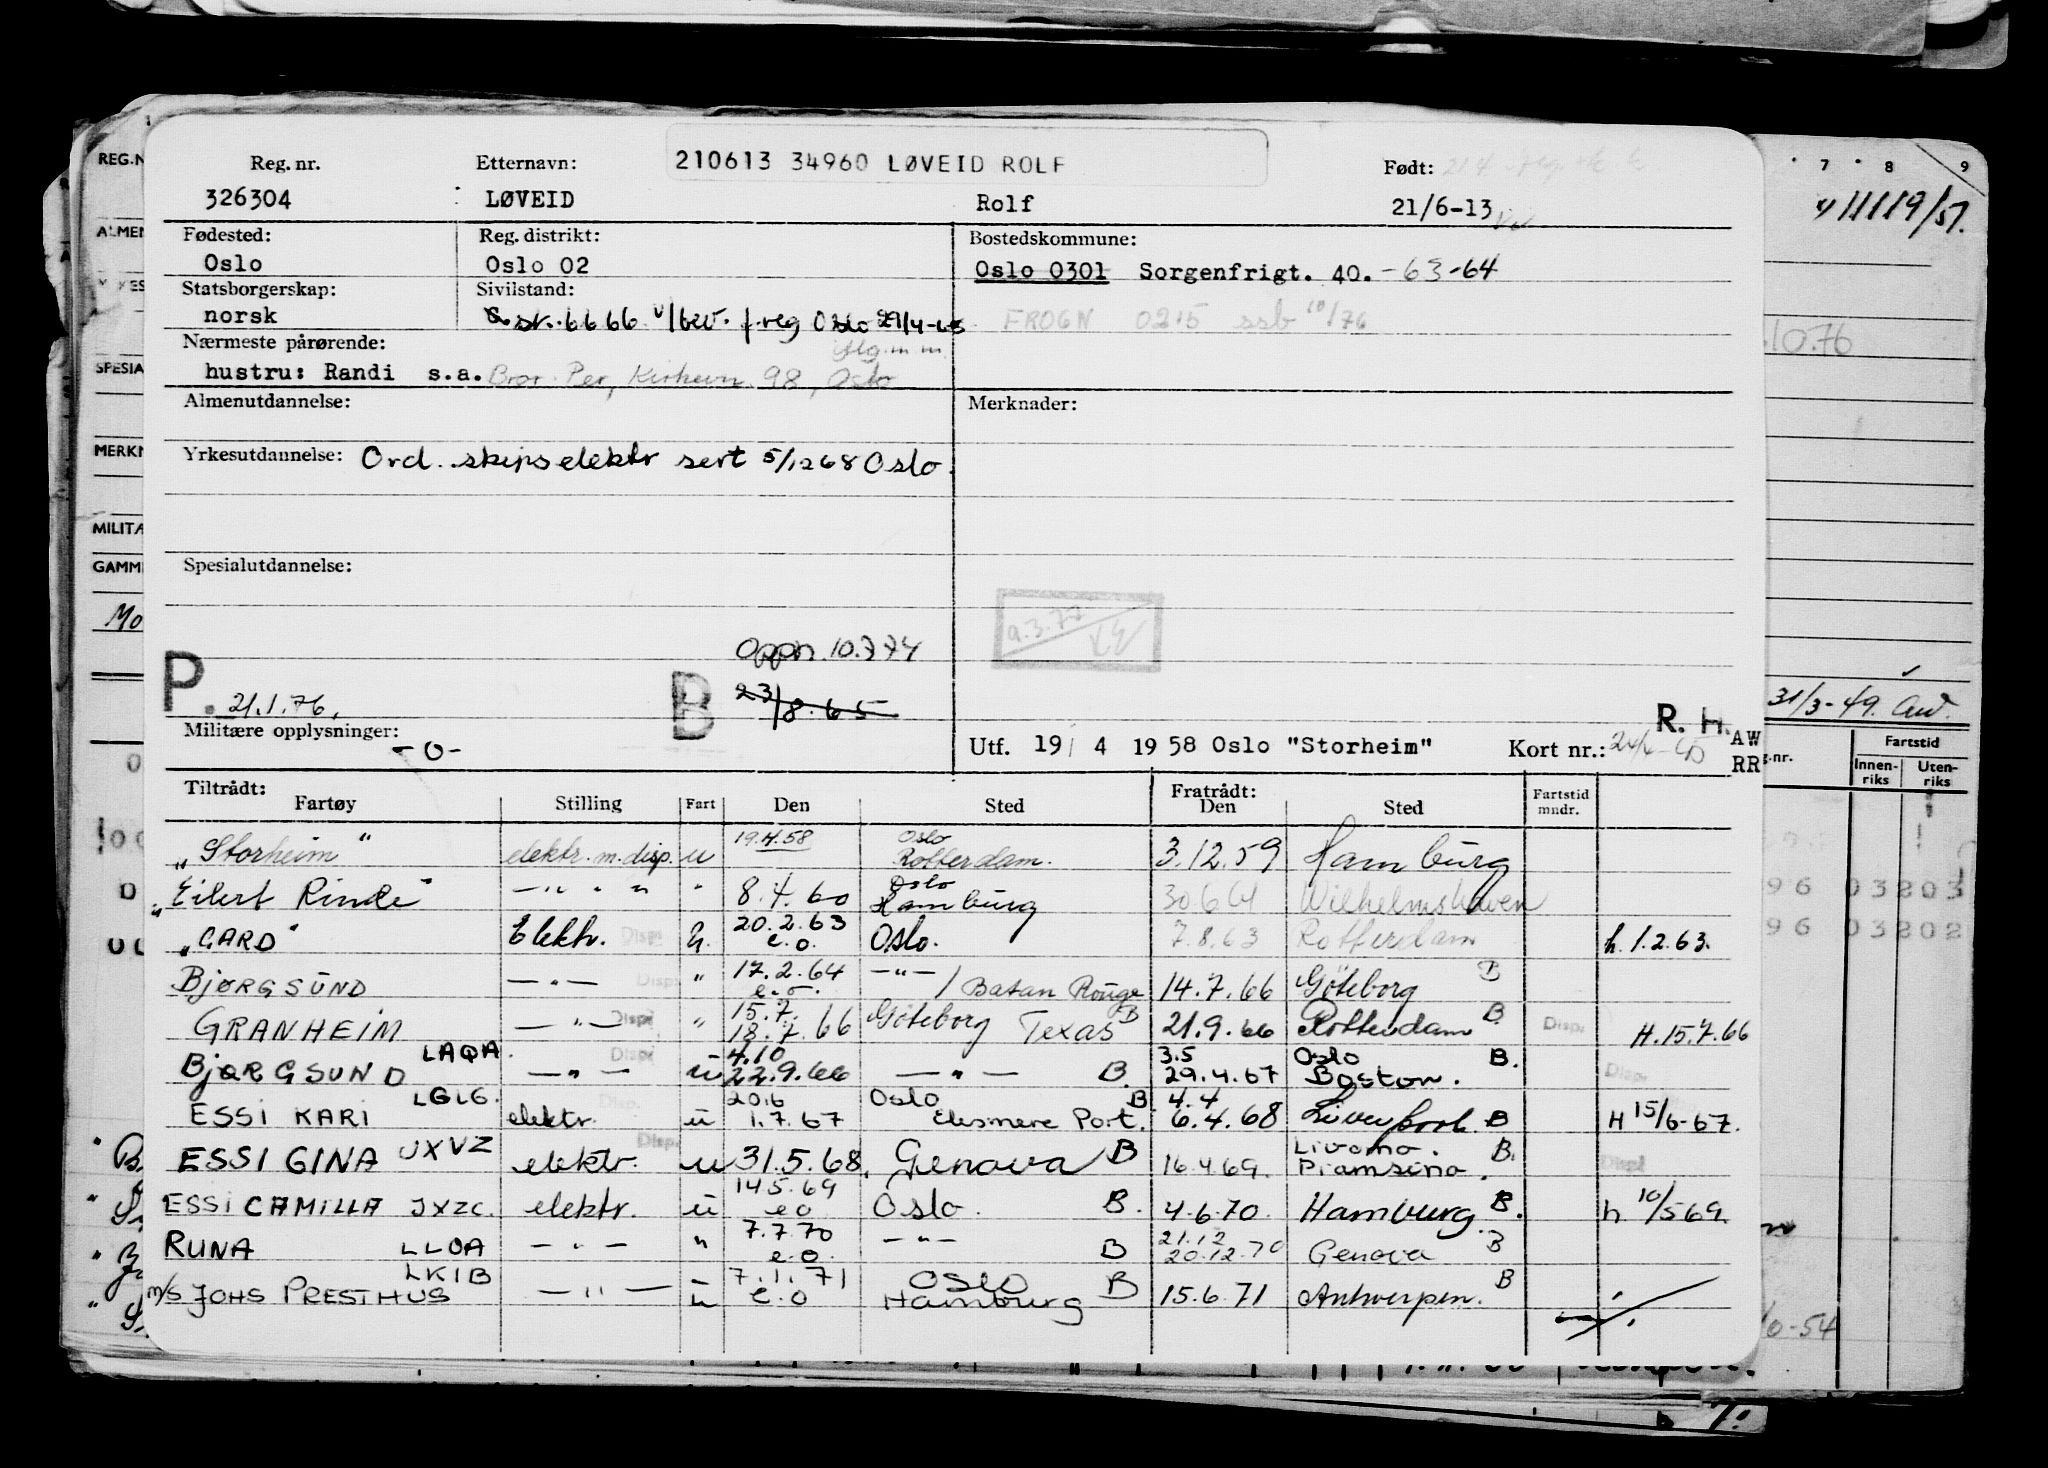 Reg. nr. Etternavn: 210613 34960 LØVEID ROLF Født:
326304 LØVEID Rolf 21/6-13
Fødested: Reg. distrikt: Bostedskommune:
Oslo Oslo 02 Oslo 0301 Sorgenfrigt. 40. -63-64
Statsborgerskap: Sivilstand:
norsk f. reg Oslo 29/4-65 FROGN 0215 ssb 10/76
Nærmeste pårørende:
hustru: Randi s.a. Bror Per, Kirkevn. 98, Oslo
Almenutdannelse: Merknader:
Yrkesutdannelse: Ord. skipselektr sert 5/12 68 Oslo.
Spesialutdannelse:
Oppn. 10.7.74
P. 21.1.76. B 23/8-65
R. H.
Militære opplysninger: -0- Utf. 19/ 4 1958 Oslo "Storheim" Kort nr.: AW
RR
Tiltrådt: Fratrådt:
Fartøy Stilling Fart Den Sted Den Sted Fartstid mndr.
"Storheim" elektr. m. disp. u 19.4.58 Oslo Rotterdam. 3.12.59 Hamburg
"Eilert Rinde" -"- " " " 8.4.60 Oslo Hamburg 30.6.61 Wilhelmshaven
"GARD" Elektr. Disp u. 20.2.63 e.o. Oslo. 7.8.63 Rotterdam h. 1.2.63.
BJØRGSUND -"- Disp " 17.2.64 e.o. -"- / Batan Rouge 14.7.66 Göteborg B
GRANHEIM -"- Disp " 15.7. 18.7.66 Göteborg Texas B 21.9.66 Rotterdam B. Disp. H. 15.7.66
BJØRGSUND LAQA. -"- Disp u 4.10 22.9.66 -"- B. 3.5 29.4.67 Oslo Boston. B. Disp.
ESSI KARI LGLG. elektr. Disp. u 20.6 1.7.67 Oslo Elesmere Port. B. 4.4 6.4.68 Liverpool. B H 15/6-67.
ESSI GINA JXVZ elektr. Disp. u 31.5.68, Genova B 16.4.69. Livorno. Piamsino. B. Disp
ESSI CAMILLA JXZC. elektr. u 14.5.69 e.o Oslo. B. 4.6.70. Hamburg. B. h 10/5 69.
RUNA LLOA -"- " 7.7.70 e.o. -"- B 21.12 20.12.70 Genova B
m/s JOHS PRESTHUS LKIB -"- u 7.1.71 e.o OSLO Hamburg B 15.6.71 Antwerpen. B
REG.N
ALMEN
SPESIA
MERKN
MILITÆ
GAMM
Mo
7 8 9
11119/51.
10.76
31/3-49.
Fartstid
Innen-riks Uten-riks
96 03203
96 03202
10-54